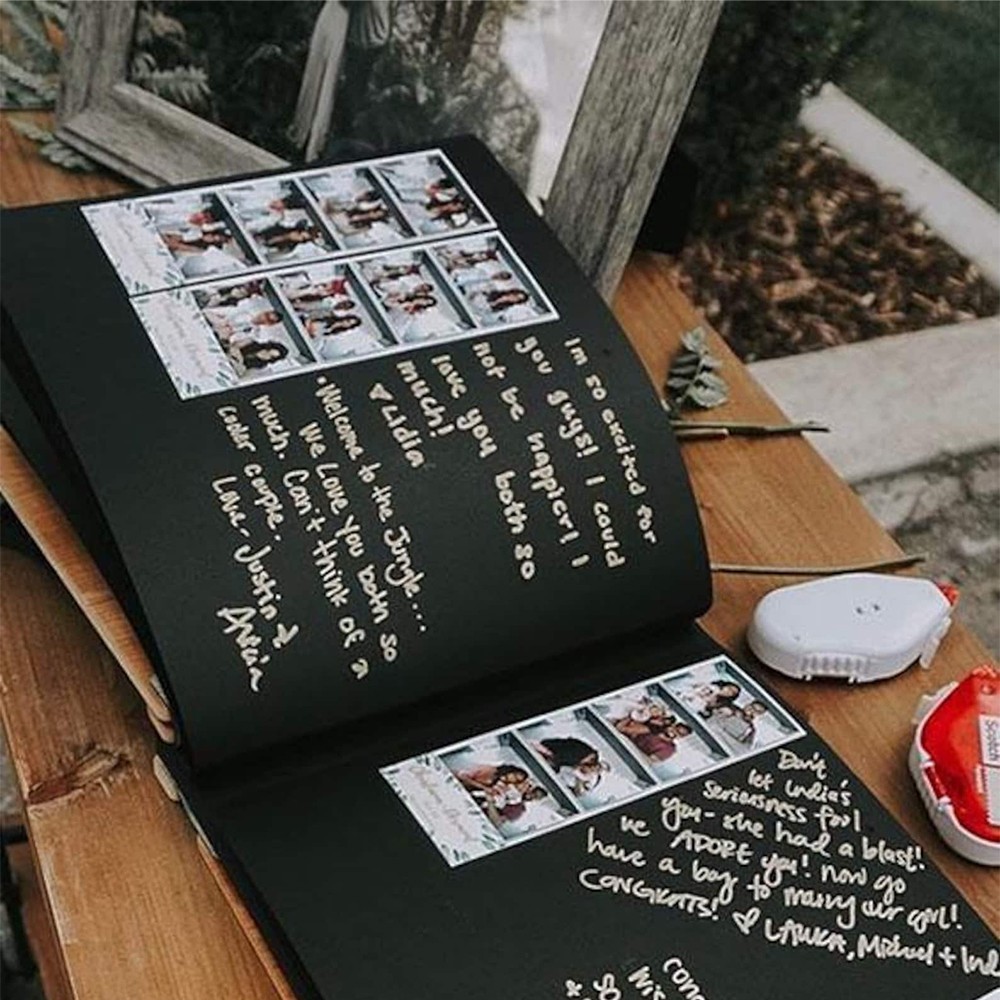 Im so excited for
you guys! I could
not be happier! I
love you both so
much!
♥ Lidia
•Welcome to the Jungle....
We Love You both so
much. Can't think of a
cooler couple.
Love - Justin &
Don't
let India's
seriousness fool
you - she had a blast!
we ADORE you! now go
have a boy to marry our girl!
CONGRATS! ♡ LAURA, Michael + Ind
Scotch